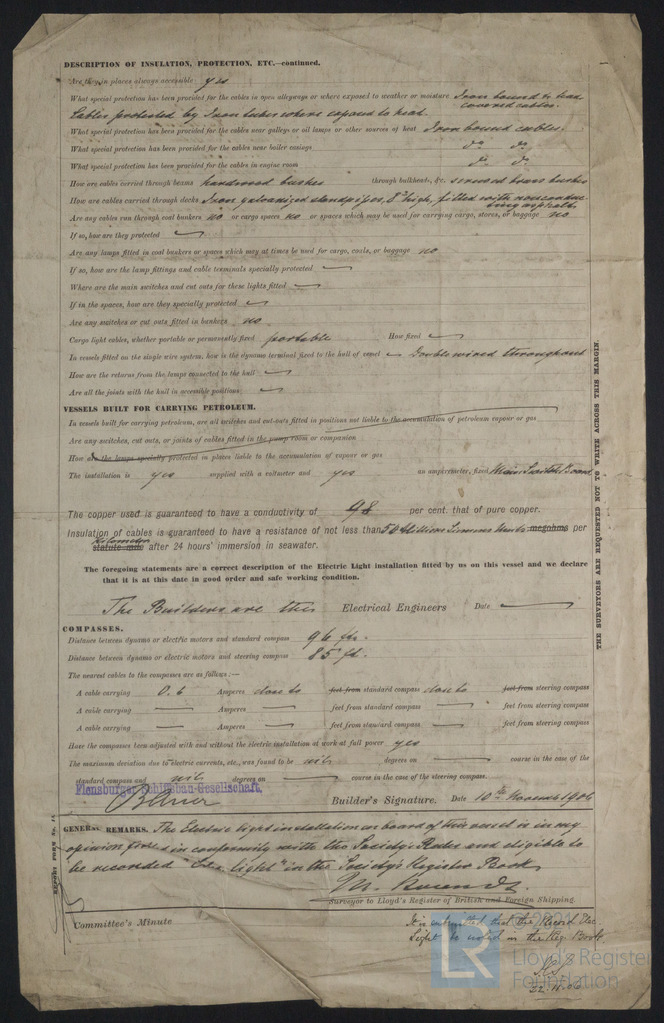 DESCRIPTION OF INSULATION, PROTECTION, ETC.—continued.
Are they in places always accessible yes
What special protection has been provided for the cables in open alleyways or where exposed to weather or moisture Iron bound & lead
covered cables.
Cables protected by Iron tubes where exposed to heat.
What special protection has been provided for the cables near galleys or oil lamps or other sources of heat Iron bound cables.
What special protection has been provided for the cables near boiler casings do do
What special protection has been provided for the cables in engine room do do
How are cables carried through beams hardwood bushes through bulkheads, &c. screwed brass bushes
How are cables carried through decks Iron galvanized standpipes, 8" high, filled with nonconduc
ting asphalte
Are any cables run through coal bunkers no or cargo spaces no or spaces which may be used for carrying cargo, stores, or baggage no
If so, how are they protected
Are any lamps fitted in coal bunkers or spaces which may at times be used for cargo, coals, or baggage no
If so, how are the lamp fittings and cable terminals specially protected
Where are the main switches and cut outs for these lights fitted
If in the spaces, how are they specially protected
Are any switches or cut outs fitted in bunkers no
Cargo light cables, whether portable or permanently fixed portable How fixed
In vessels fitted on the single wire system, how is the dynamo terminal fixed to the hull of vessel Double wired throughout
How are the returns from the lamps connected to the hull
Are all the joints with the hull in accessible positions
VESSELS BUILT FOR CARRYING PETROLEUM.
In vessels built for carrying petroleum, are all switches and cut-outs fitted in positions not liable to the accumulation of petroleum vapour or gas
Are any switches, cut outs, or joints of cables fitted in the pump room or companion
How are the lamps specially protected in places liable to the accumulation of vapour or gas
The installation is yes supplied with a voltmeter and yes an amperemeter, fixed Main Switch Board
The copper used is guaranteed to have a conductivity of 98 per cent. that of pure copper.
Insulation of cables is guaranteed to have a resistance of not less than 50 Million Siemens Units megohms per
Kilometer
statute mile after 24 hours' immersion in seawater.
The foregoing statements are a correct description of the Electric Light installation fitted by us on this vessel and we declare
that it is at this date in good order and safe working condition.
The Builders are the Electrical Engineers Date
COMPASSES.
Distance between dynamo or electric motors and standard compass 96 ft.
Distance between dynamo or electric motors and steering compass 85 ft.
The nearest cables to the compasses are as follows:—
A cable carrying 0.6 Amperes close to feet from standard compass close to feet from steering compass
A cable carrying Amperes feet from standard compass feet from steering compass
A cable carrying Amperes feet from standard compass feet from steering compass
Have the compasses been adjusted with and without the electric installation at work at full power yes
The maximum deviation due to electric currents, etc., was found to be nil degrees on course in the case of the
standard compass and nil degrees on course in the case of the steering compass.
Flensburger Schiffsbau-Gesellschaft.
Builder's Signature. Date 10th November 1906
GENERAL REMARKS. The Electric light installation on board of this vessel is in my
opinion fixed in conformity with the Society's Rules and eligible to
be recorded "Elec. light" in the Society's Register Book
Surveyor to Lloyd's Register of British and Foreign Shipping.
Committee's Minute
It is submitted that the Record Elec
Light be noted in the Reg. Book
22.11.06
THE SURVEYORS ARE REQUESTED NOT TO WRITE ACROSS THIS MARGIN.
REPORT FORM No. 13
© 2021
LR
Lloyd's Register
Foundation